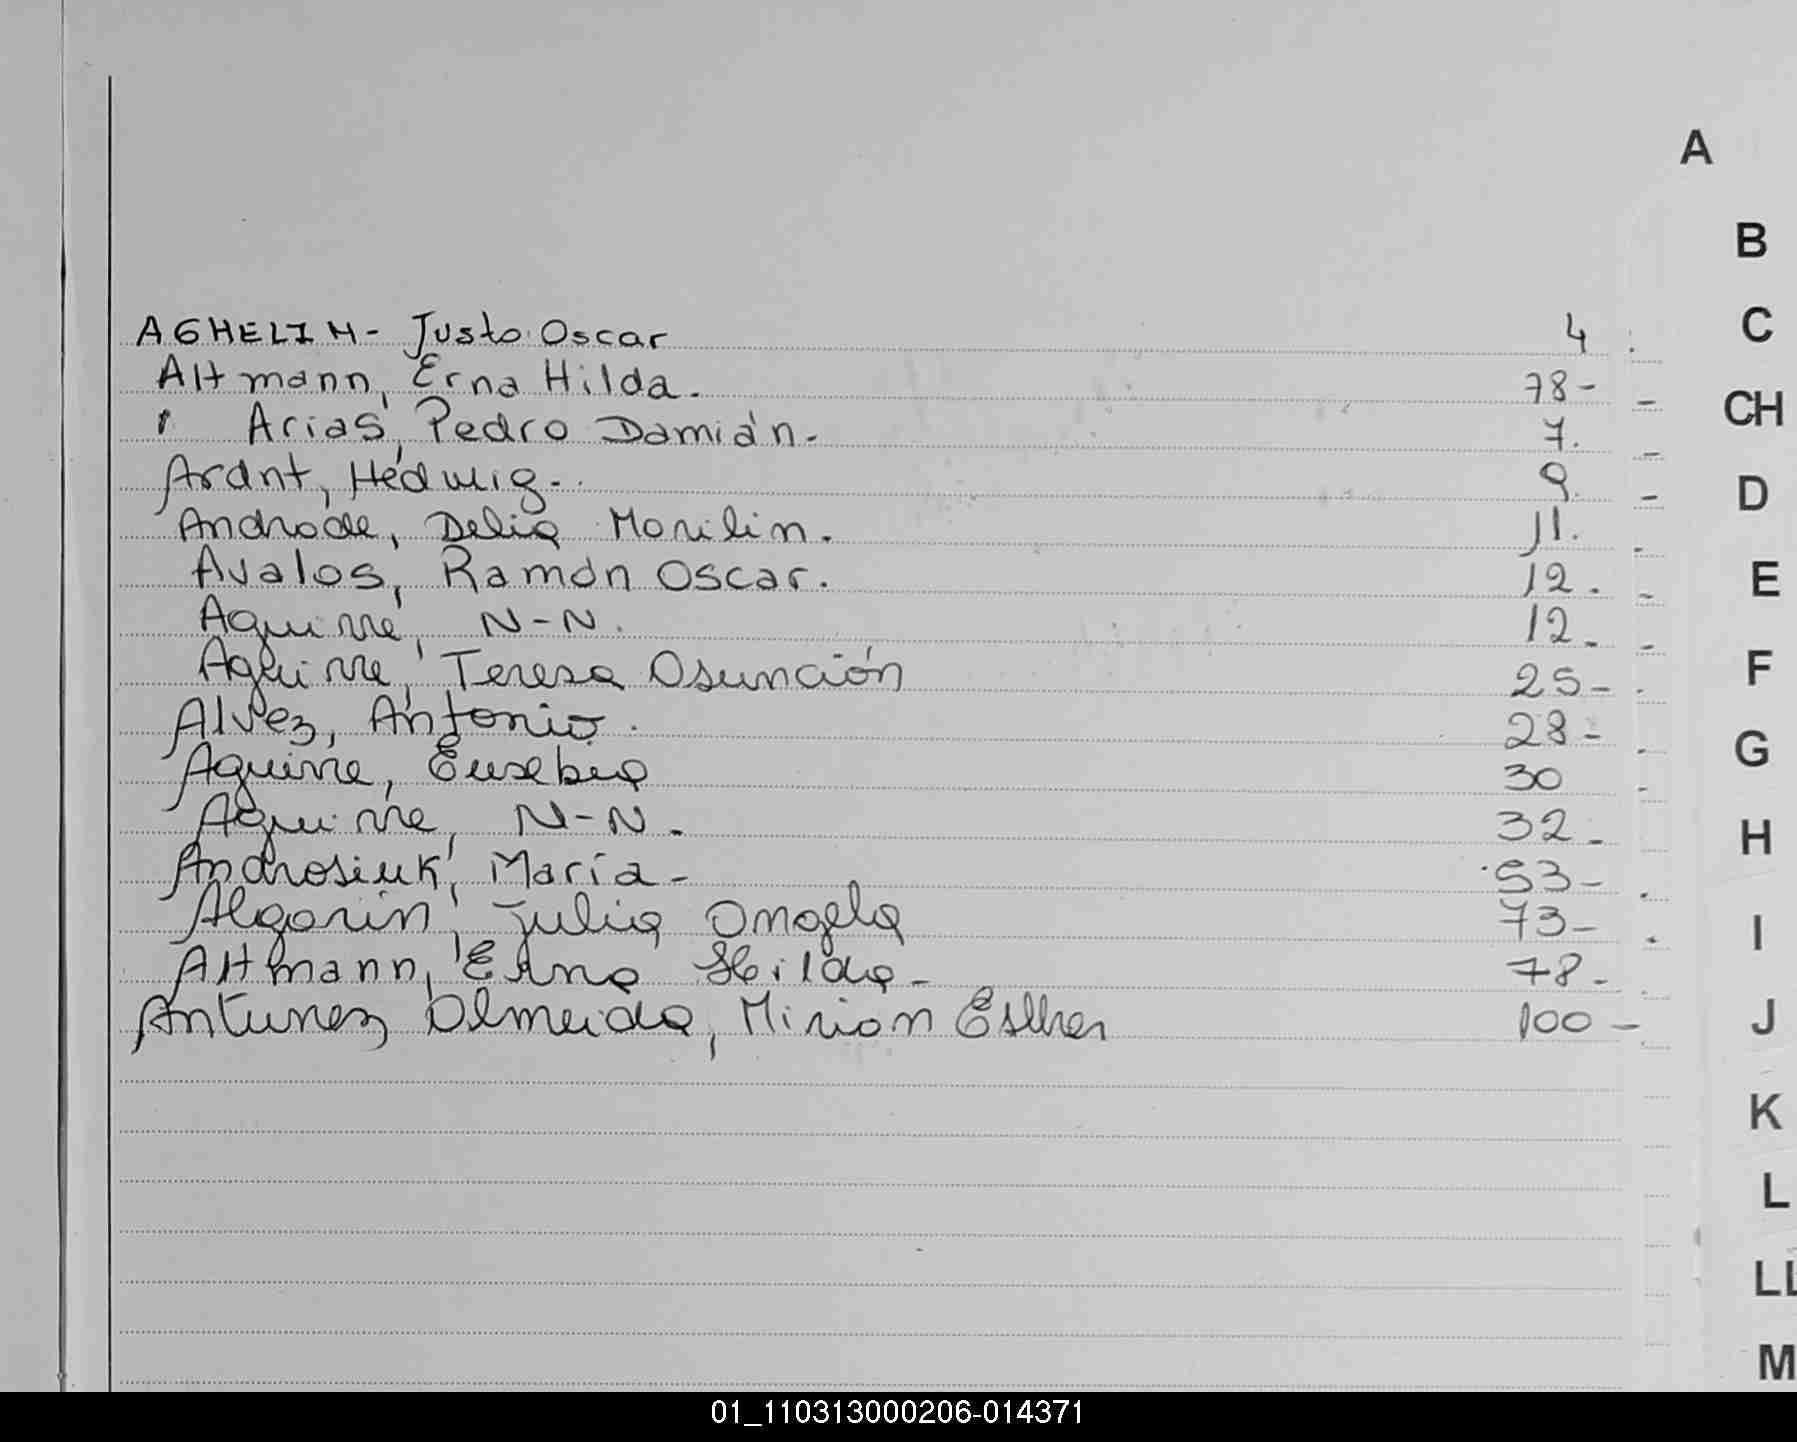 A
B
C
AGHELIM - Justo Oscar 4
Altmann, Erna Hilda. 78-
CH
Arias, Pedro Damián. 7.
Arant, Hedwig. 9.
D
Andrade, Delia Marilin. 11.
Avalos, Ramón Oscar. 12.
E
Aguirre, N-N. 12.
Aguirre, Teresa Asunción 25-
F
Alvez, Antonio. 28-
G
Aguirre, Eusebia 30
Aguirre, N-N. 32.
H
Androsiuk, María - 53-
Algarin, Julia Angela 73-
I
Altmann, Erna Hilda - 78-
Antunez Almeida, Mirian Esther 100-
J
K
L
LL
M
01_110313000206-014371